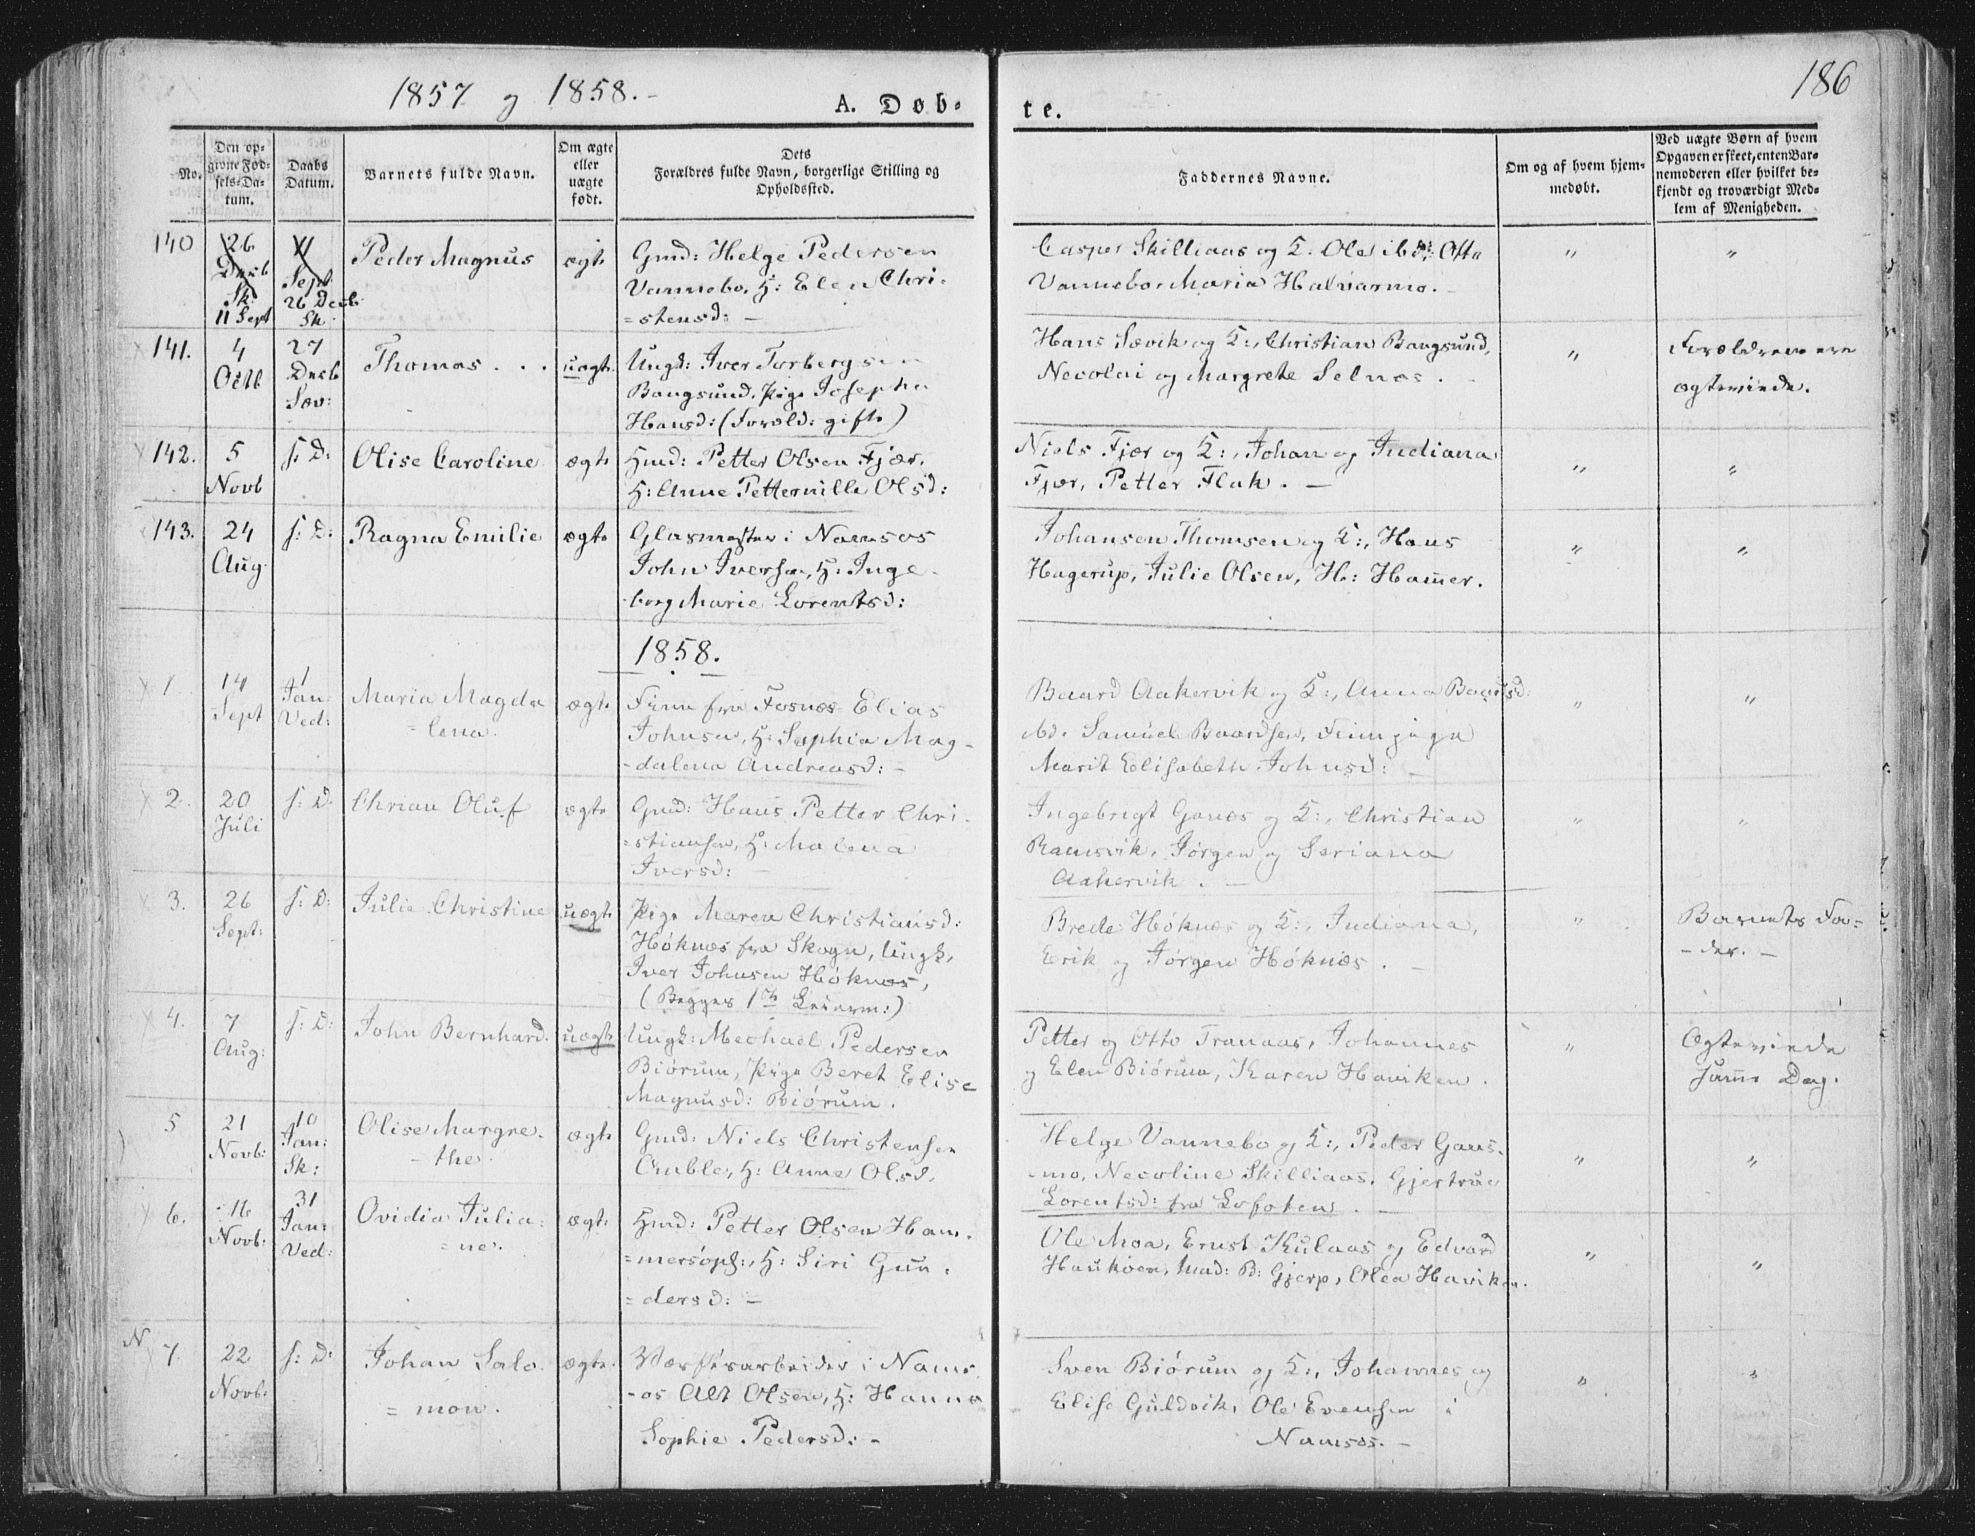 1857 og 1858.-
A. Døb-
te.
186
No.
Den op-
givne Fød-
sels-Da-
tum.
Daabs
Datum.
Barnets fulde Navn.
Om ægte
eller
uægte
født.
Dets
Forældres fulde Navn, borgerlige Stilling og
Opholdssted.
Faddernes Navne.
Om og af hvem hjem-
medøbt.
Ved uægte Børn af hvem
Opgaven er skeet, enten Bar-
nemoderen eller hvilket be-
kjendt og troværdigt Med-
lem af Menigheden.
140
26
Decb
Sk.
11 Sept
11
Sept
26 Decb
Sk.
Peder Magnus
ægte
Gmd: Helge Pedersen
Vannebo, H: Elen Chri-
=stensd: -
Casper Skilliaas og K: Ole ibd: Otto
Vannebo. Maria Halvarmo.
"
"
141.
4
Octb
27
Decb
Sæv:
Thomas . . .
uægte
Ungk: Iver Torbergsen
Bangsund, Pige Josepha
Hansd: (Foræld: gifte)
Hans Sævik og K:, Christian Bangsund,
Necolai og Margrete Selnæs .
"
Forældrene ere
ægteviede.
142.
5
Novb
s: D:
Olise Caroline
ægte
Hmd: Petter Olsen Fjær,
H: Anne Petternille Olsd:
Niels Fjær og K:, Johan og Indiana
Fjær, Petter Flak. -
"
"
143.
24
Aug
s: D:
Ragna Emilie
ægte
Glasmester i Namsos
John Iversen, H: Inge-
borg Marie Lorentsd:
Johansen Thomsen og K:, Hans
Hagerup, Julie Olsen, H: Hamer.
"
"
1858.
1.
14
Sept
1
Jan:
Ved:
Maria Magda
=lena.
ægte
Finn fra Fosnæs Elias
Johnsen, H: Sophia Mag-
-dalena Andreasd: -
Baard Aakervik og K:, Anna Baardsd:
ibd. Samuel Baardsen, Finnpige
Marit Elisabeth Johnsd: -
"
"
2.
20
Juli
s: D:
Chrian Oluf
ægte
Gmd: Hans Petter Chri-
=stiansen, H: Malena
Iversd: -
Ingebrigt Ganæs og K:, Christian
Ramsvik, Jørgen og Seriana
Aakervik. -
"
"
3.
26
Sept:
s: D:
Julie Christine
uægte
Pige Maren Christiansd:
Høknæs fra Skogn, Ungk,
Iver Johnsen Høknæs,
(Begges 1ste Leierm:)
Brede Høknæs og K:, Indiana,
Erik og Jørgen Høknæs. -
"
Barnets Fa-
-der. -
4.
7
Aug:
s: D:
John Bernhard.
uægte
Ungk: Mechael Pedersen
Biørum, Pige Beret Elise
Magnusd: Biørum.
Petter og Otto Tranaas, Johannes
og Elen Biørum, Karen Haviken.
"
Ægteviede
samme Dag.
5
21
Novb:
10
Jan:
Sk:
Olise Margre-
-the
ægte
Gmd: Niels Christensen
Amble, H: Anne Olsd,
Helge Vannebo og K:, Peder Gans-
mo, Necoline Skilliaas, Gjertrue
Lorentsd: fra Lofoten. -
"
"
6.
16
Novb:
31
Jan:
Ved:
Ovidia Julia=
=ne.
ægte
Hmd: Petter Olsen Ham-
=mersøpl:, H: Siri Gun-
=dersd: -
Ole Moa, Ernst Kulaas og Edvard
Haukøen, Mad: B: Gjerp, Olea Haviken.
"
"
N
7.
22
Novb:
s: D:
Johan Salo.
=mon.
ægte
Værftsarbeider i Nams-
-os Alt Olsen, H: Hanna
Sophie Pedersd: -
Sven Biørum og K:, Johannes og
Elise Guldvik, Ole Evensen i
Namsos. -
"
"